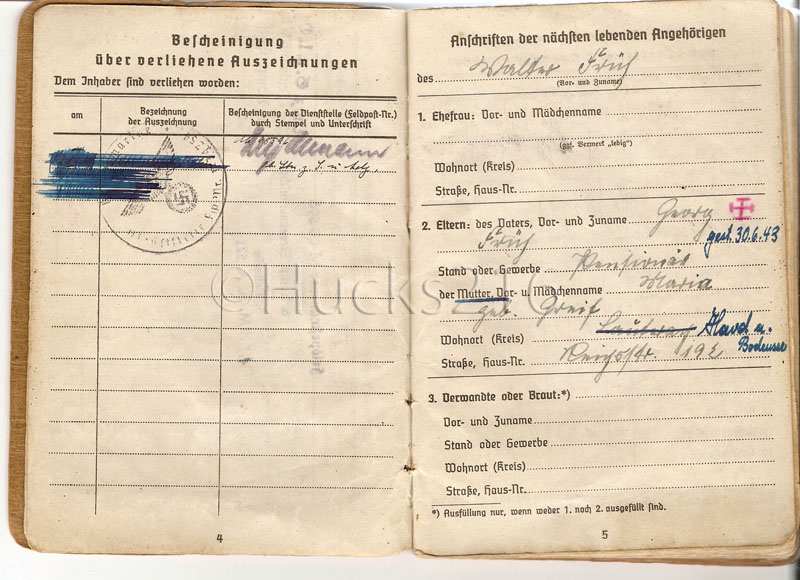 Bescheinigung
über verliehene Auszeichnungen
Dem Inhaber sind verliehen worden:
am
Bezeichnung
der Auszeichnung
Bescheinigung der Dienststelle (Feldpost-Nr.)
durch Stempel und Unterschrift
4
Anschriften der nächsten lebenden Angehörigen
des Walter Früh
(Vor- und Zuname)
1. Ehefrau: Vor- und Mädchenname
(ggf. Vermerk „ledig")
Wohnort (Kreis)
Straße, Haus-Nr.
2. Eltern: des Vaters, Vor- und Zuname Georg
Früh gest. 30.6.43
Stand oder Gewerbe Pensionär
der Mutter, Vor- u. Mädchenname Maria
geb. Greif
Wohnort (Kreis) Hard a.
Bodensee
Straße, Haus-Nr. Reichsstr. 192
3. Verwandte oder Braut:*)
Vor- und Zuname
Stand oder Gewerbe
Wohnort (Kreis)
Straße, Haus-Nr.
*) Ausfüllung nur, wenn weder 1. noch 2. ausgefüllt sind.
5